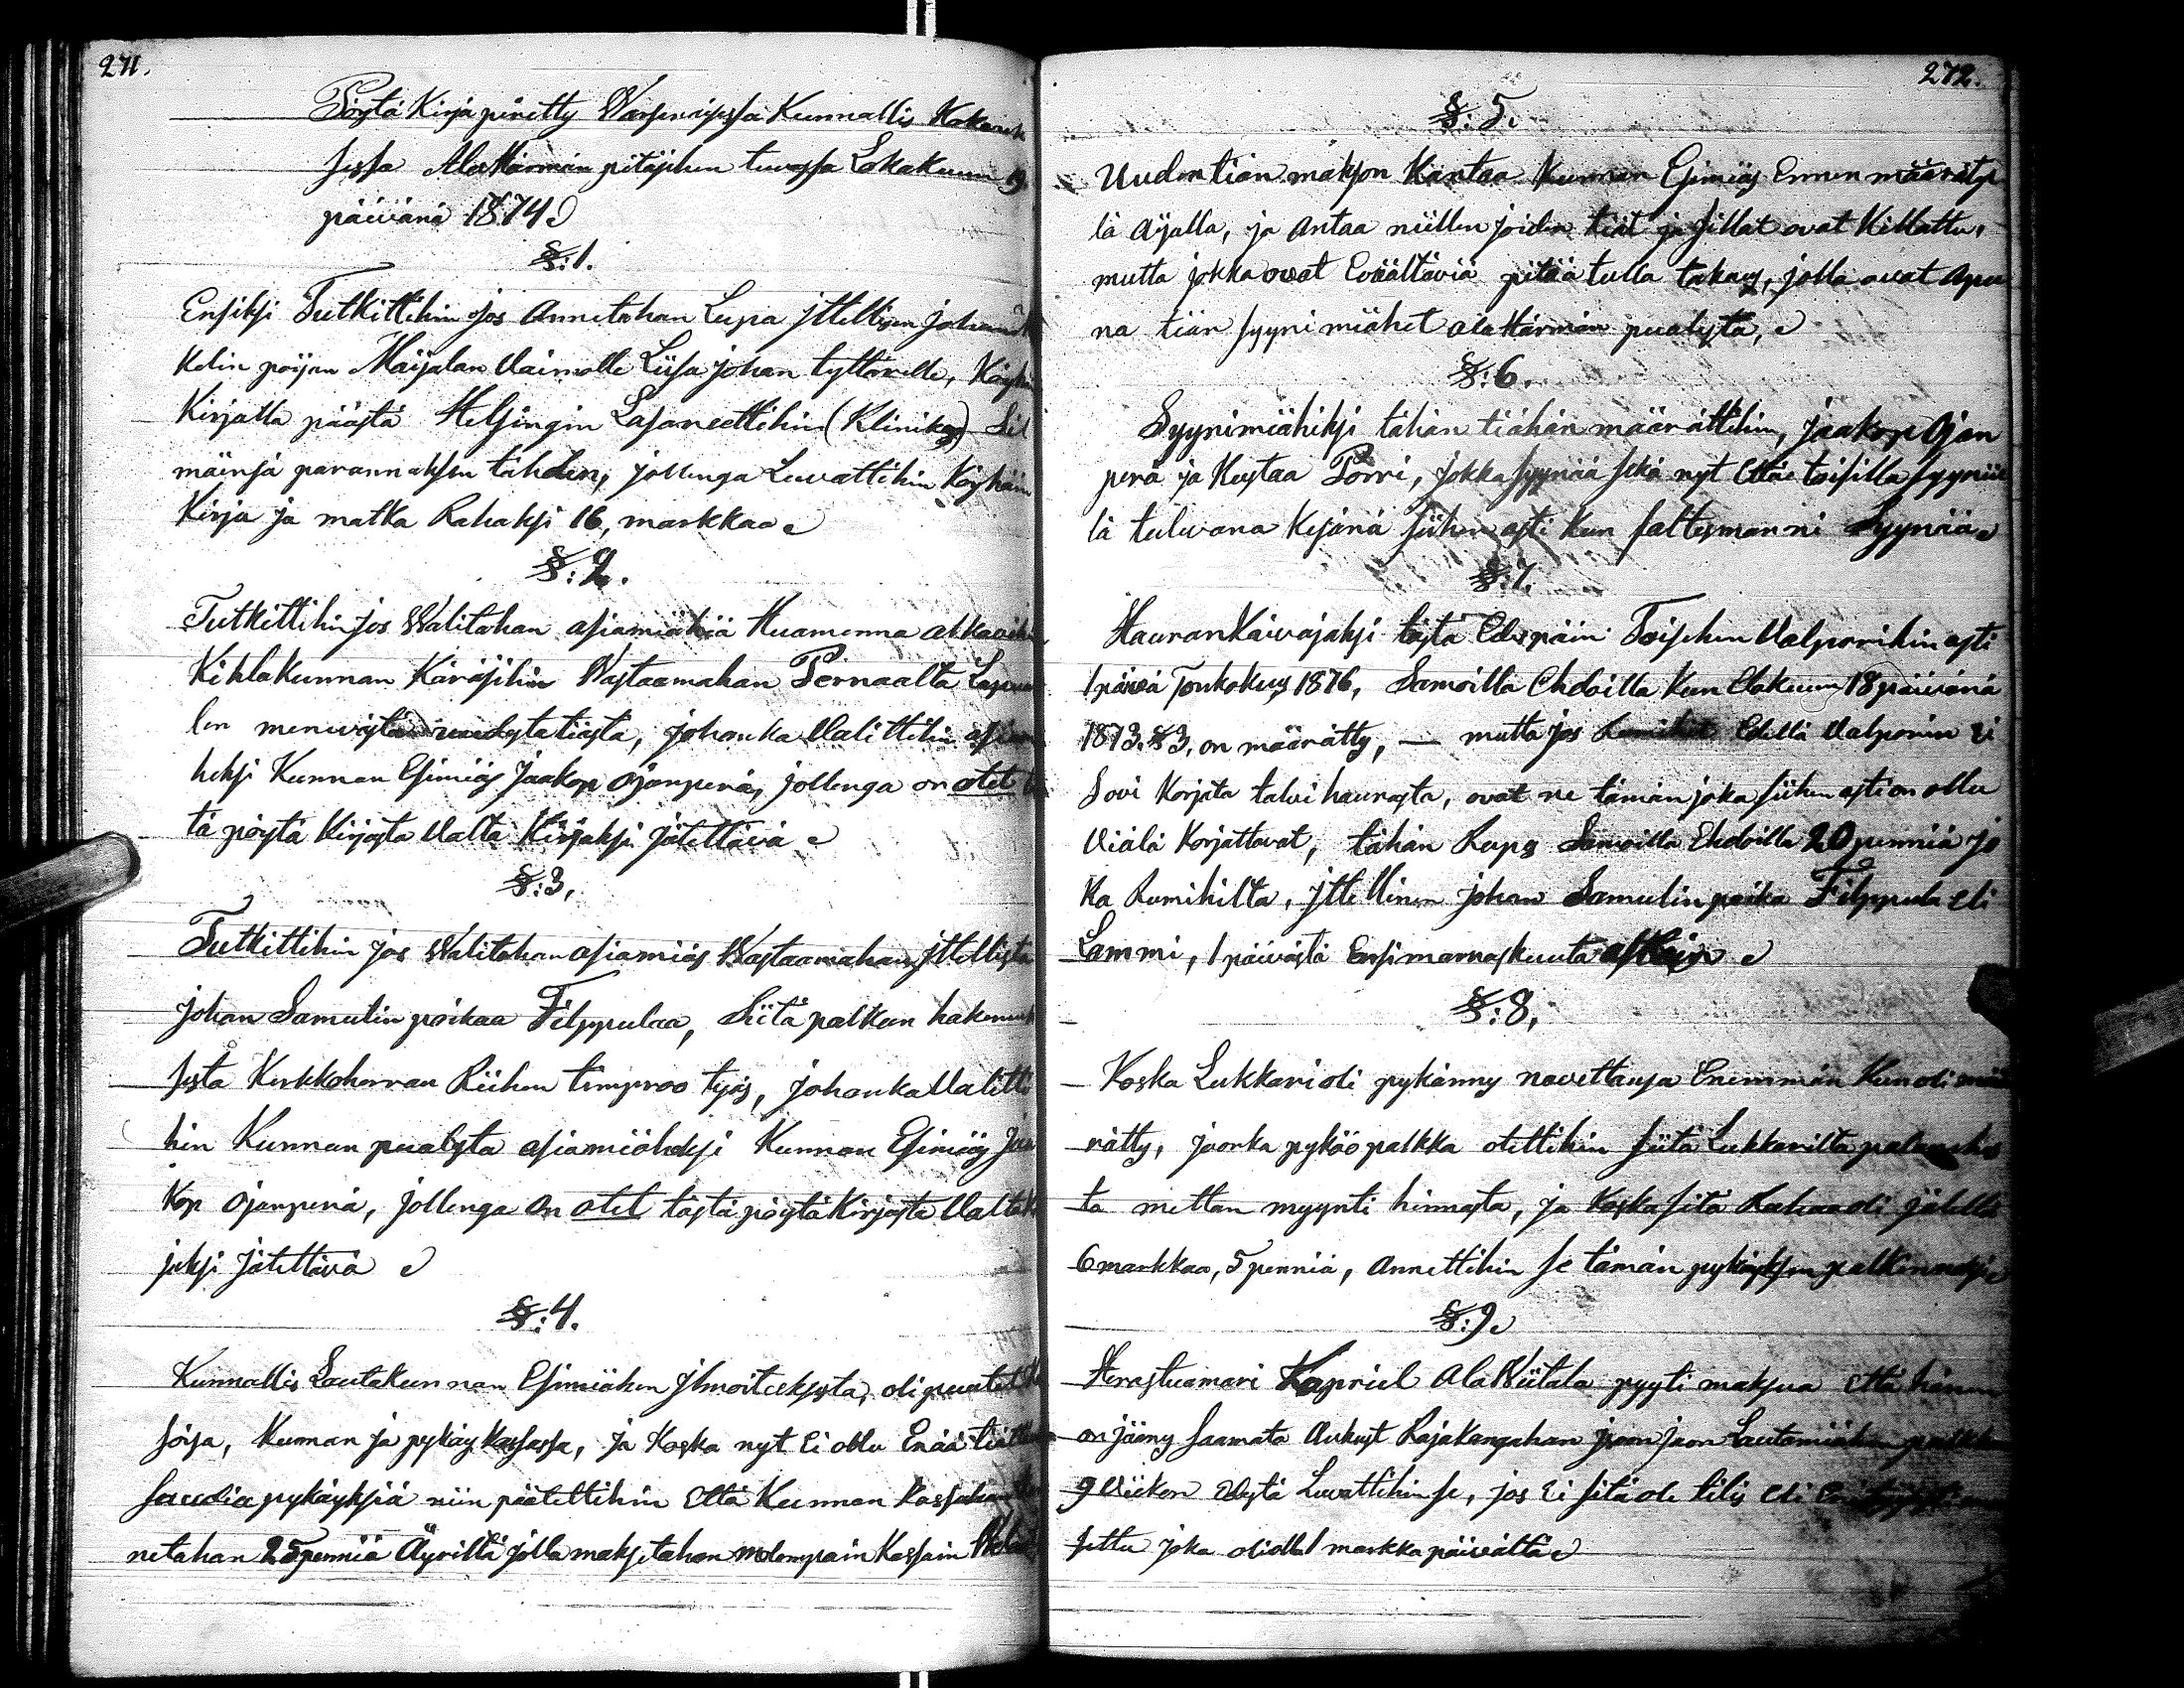 271.
Pöytä Kirja piretty Warsinaisessa Kunnallis Kokouk
sessa AlaHärmän pitäjehen tuvassa Lokakuun 19
päivänä 1874
§:1.
Ensiksi Tutkittihin jos Annetahan Lupa jttellisen Johan
Kelin poijan Maijalan Vaimolle Liisa johan tyttärelle, Köyhän
Kirjalla päästä Helsingin Lasareettihin (Klinikas) Sil
mäinsä parannuksen tähden, jollenga Luvattihin Köyhäin
Kirja ja matka Rahaksi 16, markkaa
§:2.
Tutkittihin jos Walitahan asiamiähiä Huamenna alkavihin
Kihlakunnan Käräjihin Wastaamahan Pernaalta Lapuu
len menevästä uudesta tiästä, johonka Valittihin asiam
heksi Kunnan Esimiäs Jaakop Ojanperä, jollenga on otet
tä pöytä Kirjasta Valta Kirjaksi jätettävä
§:3,
Tutkittihin jos Walitahan asiamiäs Wastaamahan jttellistä
johan Samulin poikaa Filppulaa, Siitä palkan hakemuk
sesta Kirkkoherran Riihen timproo työs, johonka Valitti
hin Kunnan pualesta asiamiäheksi Kunnan Esimiäs Jaa
kop Ojanperä, jollenga On otet tästä pöytäKirjasta ValtaKi
jaksi jätettävä
§:4.
Kunnallis Lautakunnan Esimiähen jlmoituksesta, oli puutet
söisä, Kunnan ja pykäys kassassa, ja Koska nyt Ei ollu Enää
saudia pykäyksiä niin päätettihin Että Kunnan Kassahan
netahan 25 penniä Äyriltä jolla maksetahan molempain Kassain
272.
§:5.
Uudentiän makson Kantaa Kunnan Esimiäs Ennen määrätyl
lä Aijalla, ja Antaa niillen joiden tiät ja sillat ovat Killattu,
mutta jokka ovat Eväältäviä pitää tulla takas, jolla ovat Apu
na tiän syyni miähet ala Härmän pualesta,
§:6.
Syynimiähiksi tähän tiähän määrättihin, jaakop Ojan
perä ja Kustaa Porri, jokka syynää sekä nyt Että toisilla syyniil
lä tulevana Kesänä siihen asti kun faltesmanni Syynää
§:7.
HauranKaivajaksi tästä Edespäin Toisehen Valporihin asti
1 päivä Toukokuus 1876, Samoilla Ehdoilla Kun Elokuun 18 päivänä
1873. § 3, on määrätty, — mutta jos Edellä Valporin Ei
Sovi Korjata talvi haurasta, ovat ne tämän joka siihen asti on ollu
Viälä Korjattavat, tähän Rupes Samoilla Ehdoilla 20 penniä jo
ka Rumihilta, jttellinen johan Samulin poika Filppula Eli
Lammi, 1 päivästä Ensimarraskuuta alkain
§:8,
Koska Lukkari oli pykänny navettansa Enemmän Kun oli mää
rätty, jaonka pyköö palkka otettihin siitä Lukkarilta
ta mettan myynti hinnasta, ja Koska sitä Rahaa oli jälellä
6 markkaa, 5 penniä, Annettihin se tämän pykäyksen palkinnoksi
§:9.
Herastuamari Kapriel AlaWiitala pyyti maksua Että hänen
on jääny saamata Aukust Rajakangahan jsoon jaon Lautamiähen
9 Viikon Edestä Luvattihin se, jos Ei sitä ole tilis Eli
settu joka oli ollu 1 markka päivältä